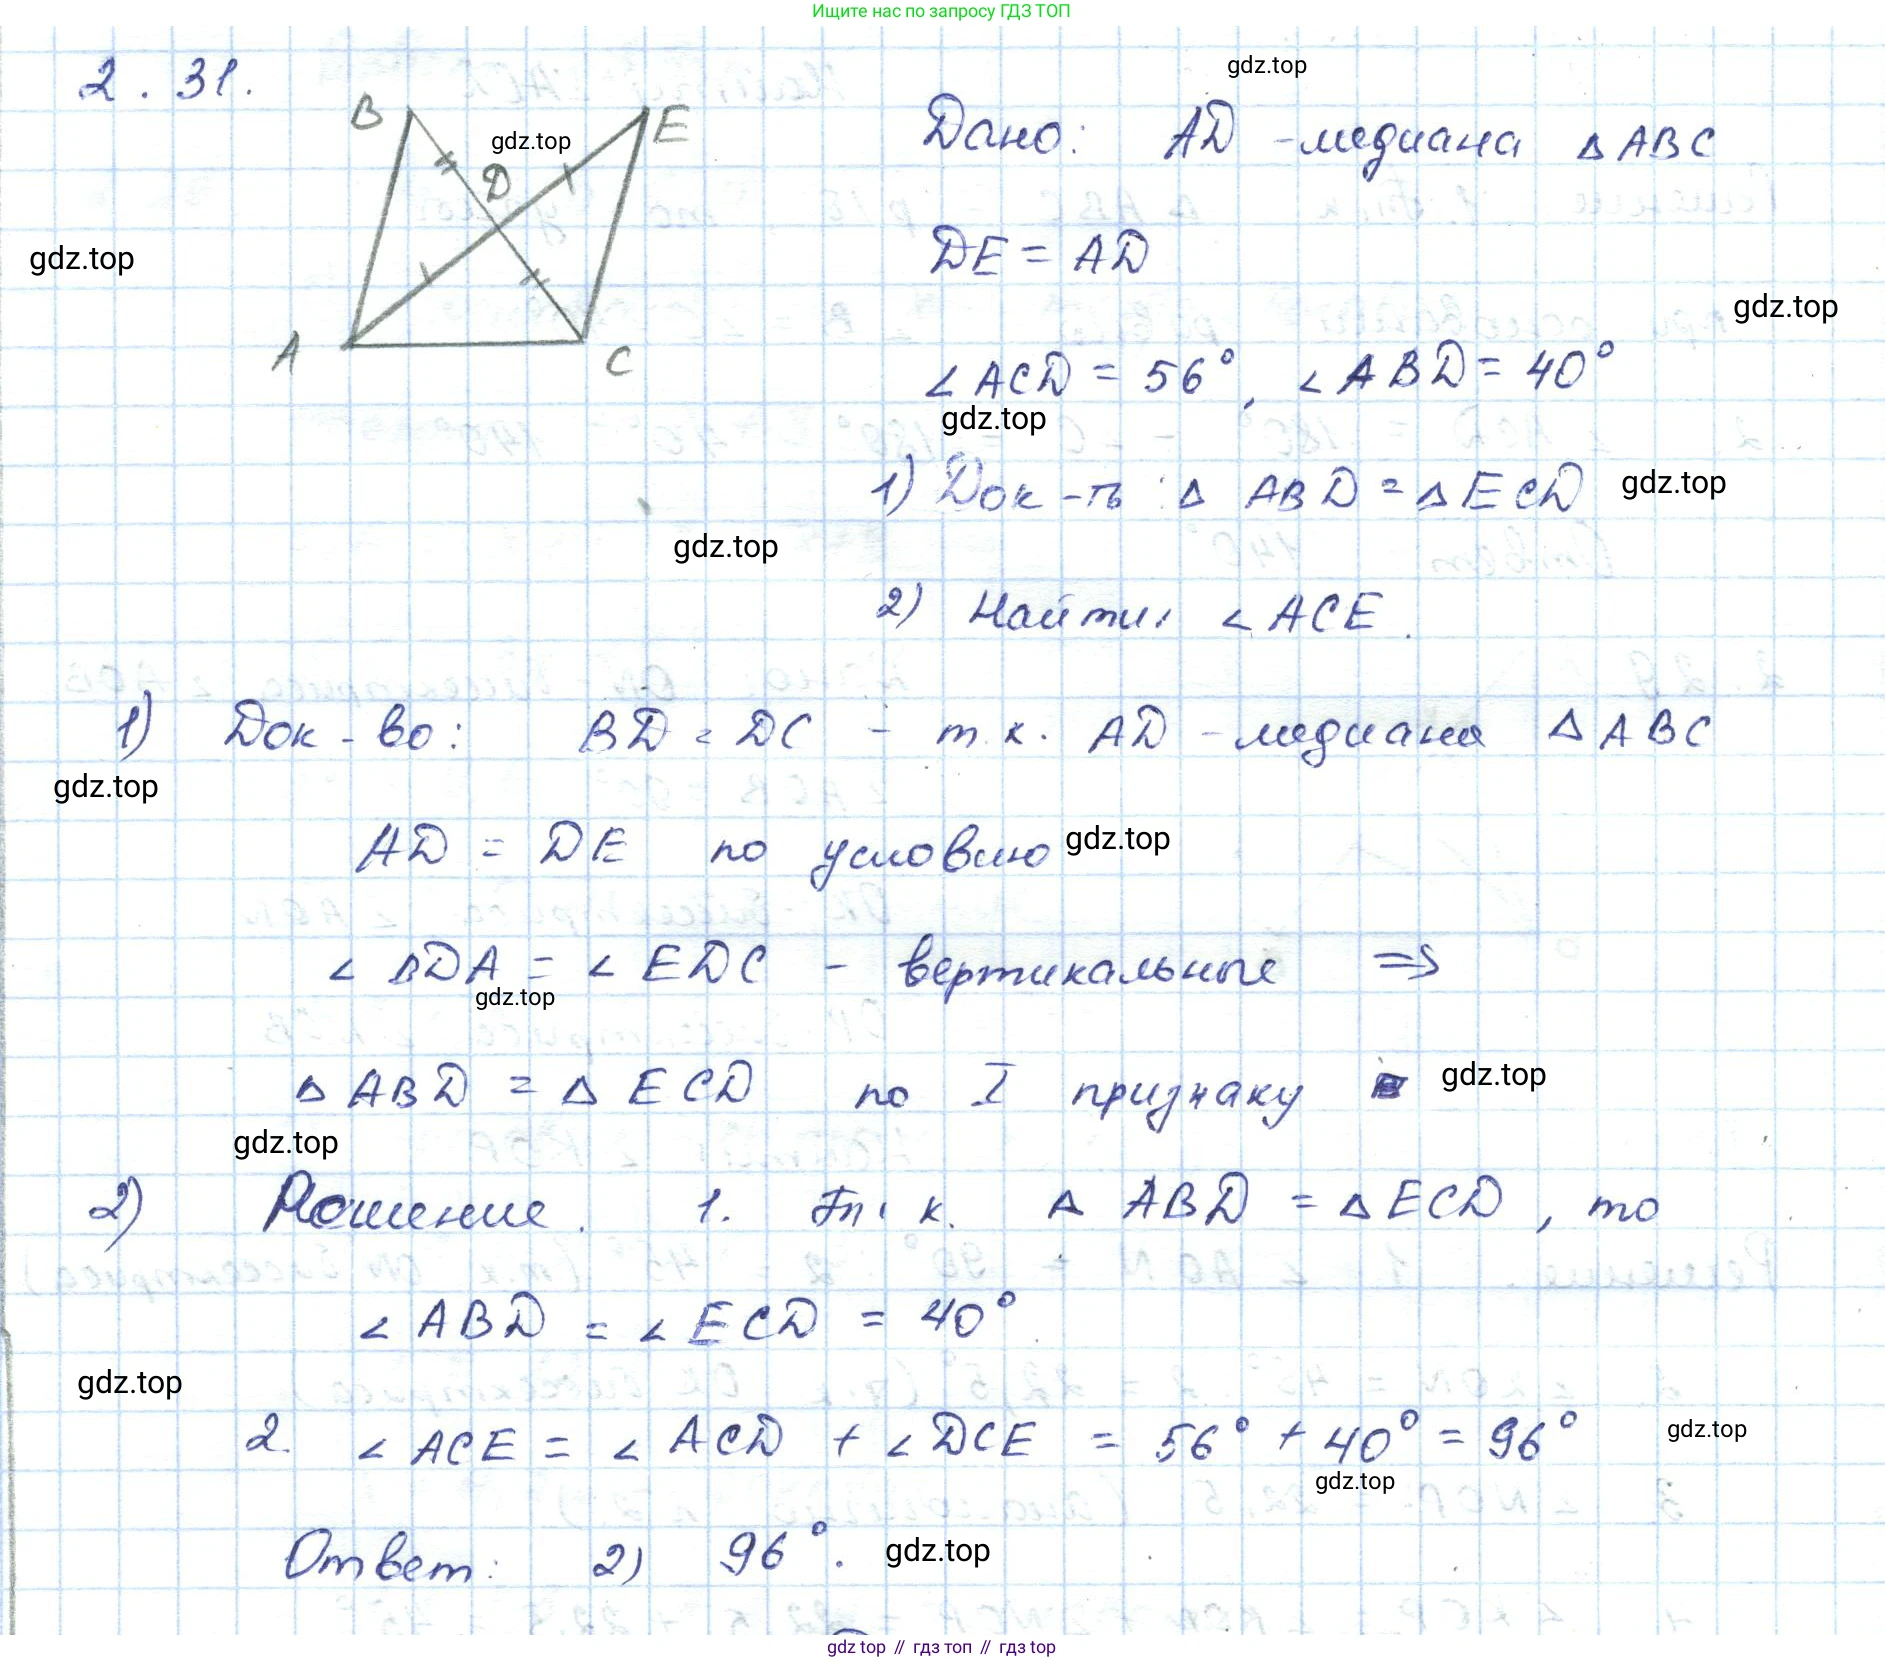 Ищите нас по запросу ГДЗ ТОП
2.31.
B
E
D
A
C
gdz.top
gdz.top
gdz.top
Дано: AD - медиана △ ABC
DE = AD
gdz.top
∠ ACD = 56°, ∠ ABD = 40°
gdz.top
1) Док-ть: △ ABD = △ ECD gdz.top
gdz.top
2) Найти: ∠ ACE.
1) Док-во: BD = DC - т.к. AD - медиана △ ABC
gdz.top
AD = DE по условию gdz.top
∠ BDA = ∠ EDC - вертикальные ⇒
gdz.top
△ ABD = △ ECD по I признаку gdz.top
gdz.top
2) Решение. 1. Т.к. △ ABD = △ ECD, то
∠ ABD = ∠ ECD = 40°
gdz.top
2. ∠ ACE = ∠ ACD + ∠ DCE = 56° + 40° = 96° gdz.top
gdz.top
Ответ: 2) 96°. gdz.top
gdz top // гдз топ // гдз top